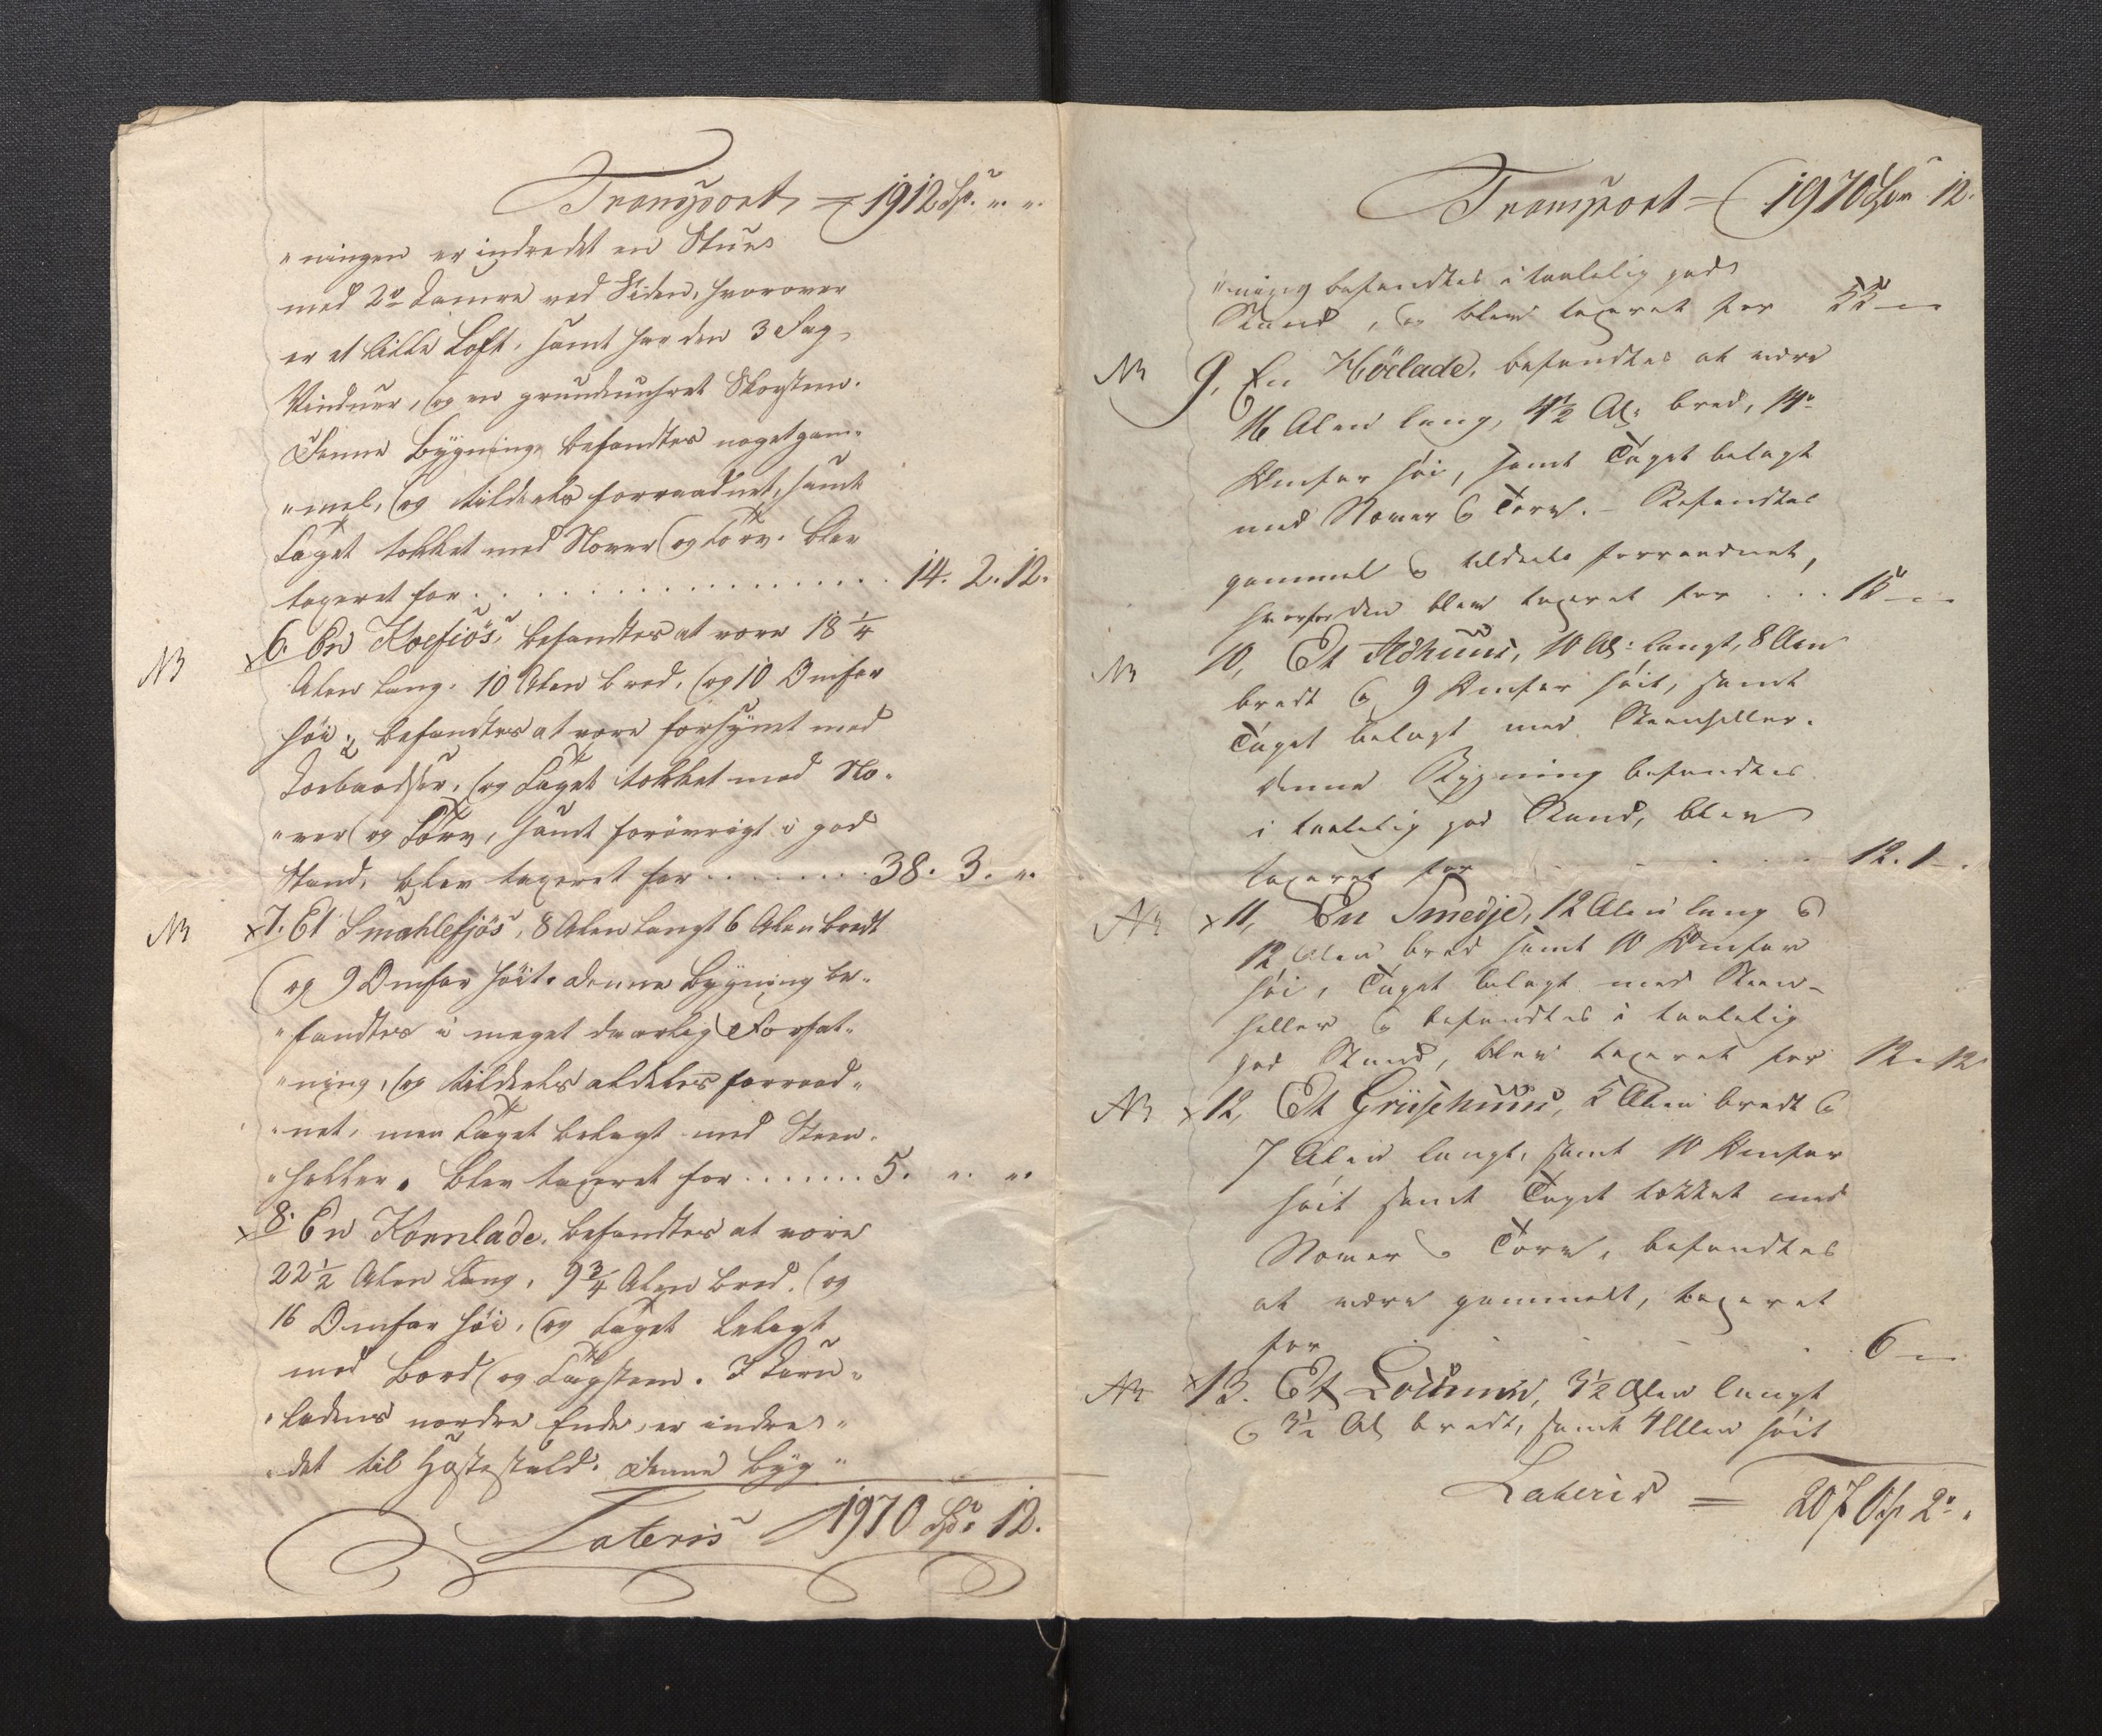 Transport = 1912 Spd. „. „.
„ningen er indredet en Stue
med 2de Kamre ved Siden, hvorover
er et lidte Loft, samt har den 3 Fag
Vinduer, og en grundmuhret Skorsteen.
Denne Bygning befandtes noget gam„
„mel, og tildeels forraadnet, samt
Taget tækket med Næver og Torv. blev
taxeret for . . . . . . . . . . 14. 2. 12.
NB x 6. En Koefiös, befandtes at være 18 1/4
Alen lang, 10 Alen bred, og 10 Omfar
höi; befandtes at være forsynet med
Koebaadser, og Taget tækket med Næ„
„ver og Torv, samt forövrigt i god
Stand, blev taxeret for . . . . . . . . 38. 3. „.
NB x 7. Et Smahlefjös, 8 Alen langt 6 Alen bredt
og 9 Omfar höit. Denne Bygning be„
„fandtes i meget daarlig Forfat„
„ning, og tildeels aldeles forraad„
„net, men Taget belagt med Steen„
„heller. blev taxeret for . . . . . . . 5. „. „.
x 8. En Kornlade, befandtes at være
22 1/2 Alen lang, 9 3/4 Alen bred, og
16 Omfar höi, og Taget belagt
med Bord og Tagsteen. I Korn„
„ladens nordre Ende, er indre„
„det til Hestestald. Denne Byg„
Lateris 1970 Spd. 12.
Transport = 1970 Spd „ 12.
„ning befandtes i taalelig god
Stand, og blev taxeret for 55 „ „
NB 9, En Höelade, befandtes at være
16 Alen lang, 4 1/2 Al: bred, 14
Omfar höi, samt Taget belagt
med Næver og Torv. – Befandtes
gammel og tildeels forraadnet,
hvorfor den blev taxeret for . . . 15 „ „
NB 10, Et Ildhuus, 10 Al: langt, 8 Alen
bredt og 9 Omfar höit, samt
Taget belagt med Steenheller.
Denne Bygning befandtes
i taalelig god Stand, blev
taxeret for . . . . . 12. 1 „.
NB x 11, En Smedje, 12 Alen lang og
12 Alen bred samt 10 Omfar
höi, Taget belagt med Steen„
heller og befandtes i taalelig
god Stand, blev taxeret for 12 „ 12
NB x 12, Et Griisehuus, 5 Alen bredt og
7 Alen langt, samt 10 Omfar
höit samt Taget tækket med
Næver og Torv, befandtes
at være gammelt, taxeret
for . . . . 6 „ „
NB x 13. Et Lochuus, 3 1/2 Alen langt
og 3 1/2 Al bredt, samt 4 Alen höit
Lateris = 207 Spd 2 „.